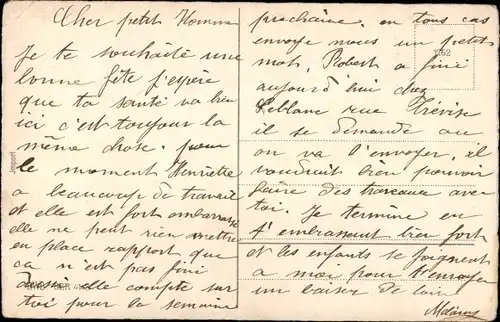 Cher petit Homme
Je te souhaite une
bonne fête j'espère
que ta santé va bien
ici c'est toujours la
même chose. pour
le moment Henriette
a beaucoup de travail
et elle est fort embarrassé
elle ne peut rien mettre
en place rapport que
ça n'est pas fini
elle compte sur
toi pour la semaine
prochaine. en tous cas
envoye nous un petit
mot, Robert a fini
aujourd'hui chez
Leblanc rue Trévise
il se demande où
on va l'envoyer, il
voudrait bien pouvoir
faire des travaux avec
toi. Je termine en
t'embrassant bien fort
et les enfants se joignent
a moi pour t'envoyer
un baiser de loin
1262
Import